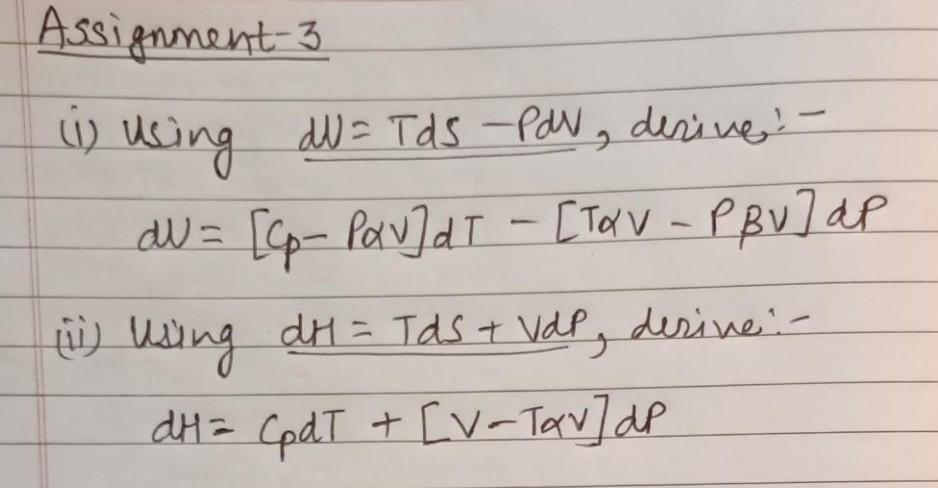 Assignment-3
(i) Using dU = TdS - PdV, derive:-
dU = [Cp - PαV]dT - [TαV - PβV]dP
(ii) Using dH = TdS + VdP, derive:-
dH = CpdT + [V-TαV]dP